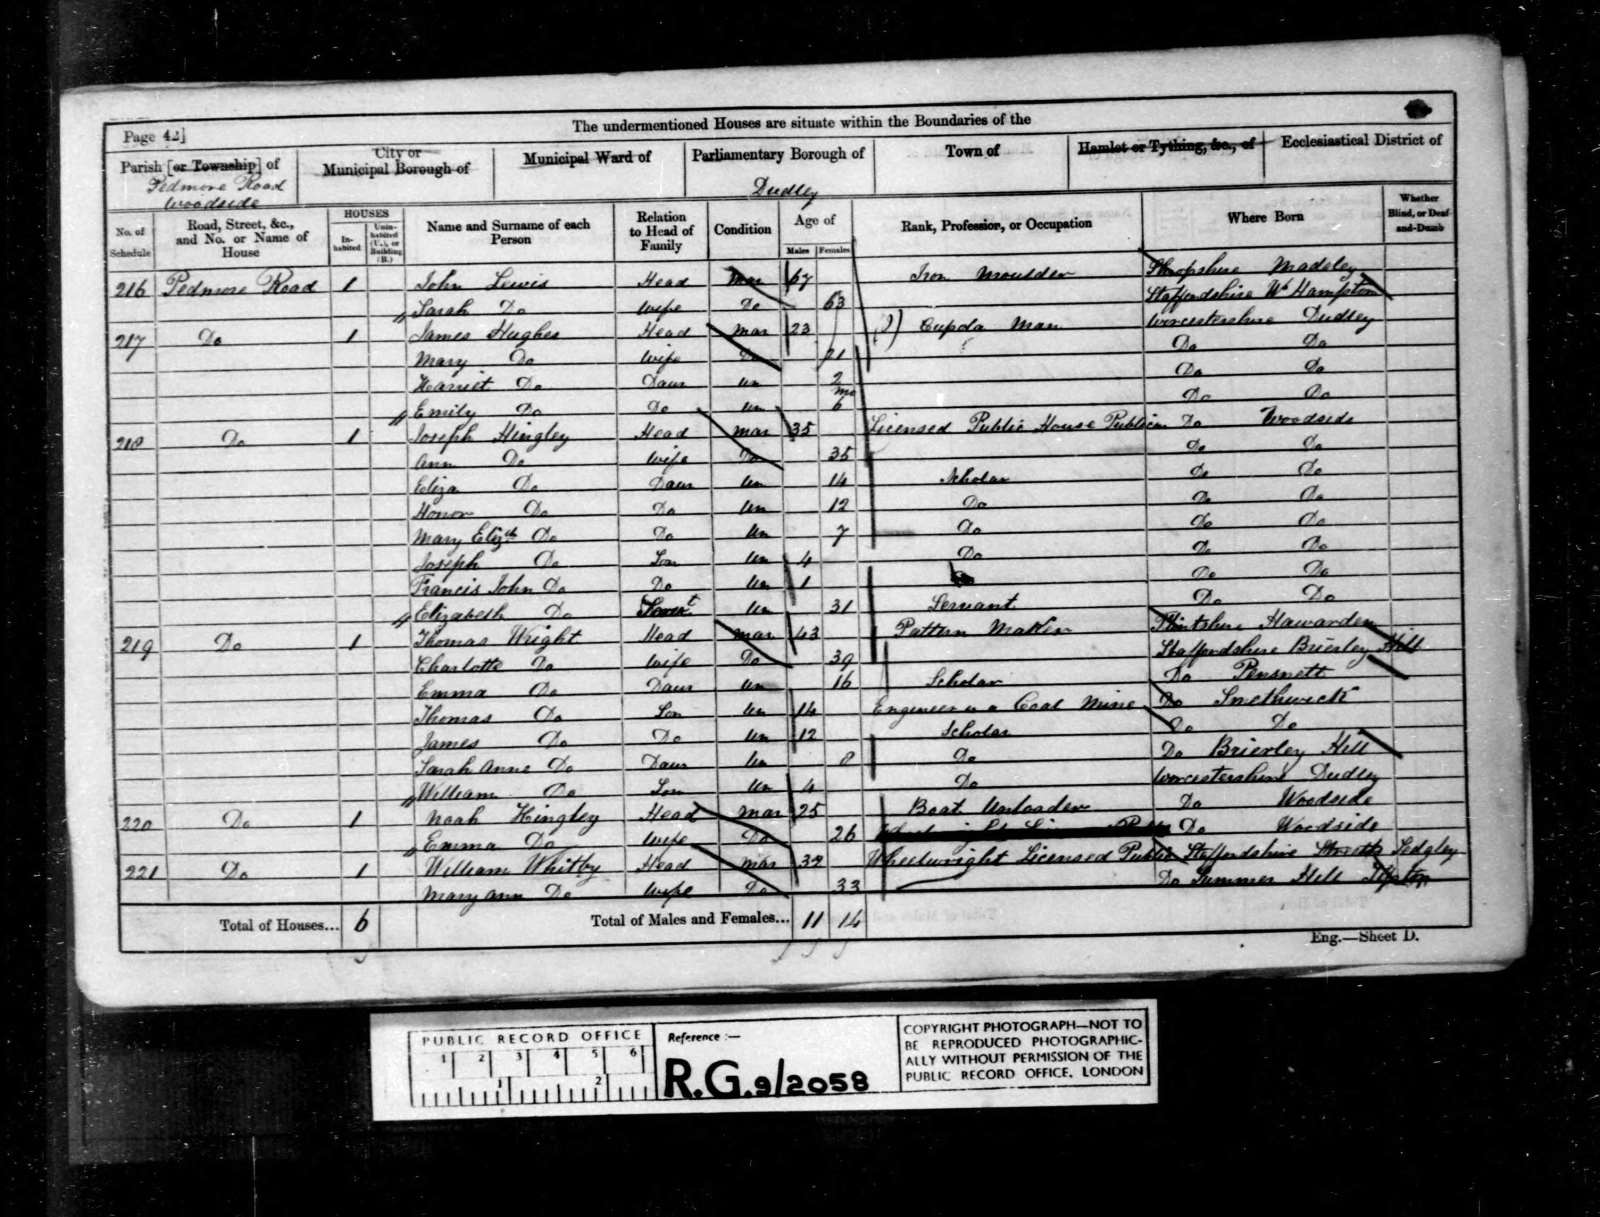 The undermentioned Houses are situate within the Boundaries of the
Page 42]
Parish [or Township] of
Pedmore Road
Woodside
City or
Municipal Borough of
Municipal Ward of
Parliamentary Borough of
Dudley
Town of
Hamlet or Tything, &c., of
Ecclesiastical District of
No. of Schedule
Road, Street, &c., and No. or Name of House
HOUSES
Inhabited
Uninhabited (U.), or Building (B.)
Name and Surname of each Person
Relation to Head of Family
Condition
Age of
Males
Females
Rank, Profession, or Occupation
Where Born
Whether Blind, or Deaf-and-Dumb
216 Pedmore Road 1 John Lewis Head Mar 67 Iron Moulder Shropshire Madeley
Sarah Do Wife Do 63 Staffordshire Wr Hampton
217 Do 1 James Hughes Head Mar 23 Cupola Man Worcestershire Dudley
Mary Do Wife Do 21 Do Do
Harriet Do Daur Un 2 Do Do
Emily Do Do Un mo 6 Do Do
218 Do 1 Joseph Hingley Head Mar 35 Licensed Public House Do Woodside
Ann Do Wife Do 35 Do Do
Eliza Do Daur Un 14 Scholar Do Do
Honor Do Do Un 12 Do Do Do
Mary Elizth Do Do Un 7 Do Do Do
Joseph Do Son Un 4 Do Do Do
Francis John Do Do Un 1 Do Do
Elizabeth Do Servt Un 31 Servant Do Do
219 Do 1 Thomas Wright Head Mar 43 Pattern Maker Flintshire Hawarden
Charlotte Do Wife Do 39 Staffordshire Brierley Hill
Emma Do Daur Un 16 Scholar Do Pensnett
Thomas Do Son Un 14 Engineer in a Coal Mine Do Smethwick
James Do Do Un 12 Scholar Do Do
Sarah Anne Do Daur Un 8 Do Do Brierley Hill
William Do Son Un 4 Do Worcestershire Dudley
220 Do 1 Noah Hingley Head Mar 25 Boat Unloader Do Woodside
Emma Do Wife Do 26 Do Woodside
221 Do 1 William Whitby Head Mar 32 Wheelwright Licensed Public Staffordshire Sedgley
Mary Ann Do Wife Do 33 Do Summer Hill Tipton
Total of Houses... 6
Total of Males and Females... 11 14
Eng.—Sheet D.
PUBLIC RECORD OFFICE
1 2 3 4 5 6
1 2
Reference :—
R.G. 9/2058
COPYRIGHT PHOTOGRAPH—NOT TO
BE REPRODUCED PHOTOGRAPHIC-
ALLY WITHOUT PERMISSION OF THE
PUBLIC RECORD OFFICE, LONDON